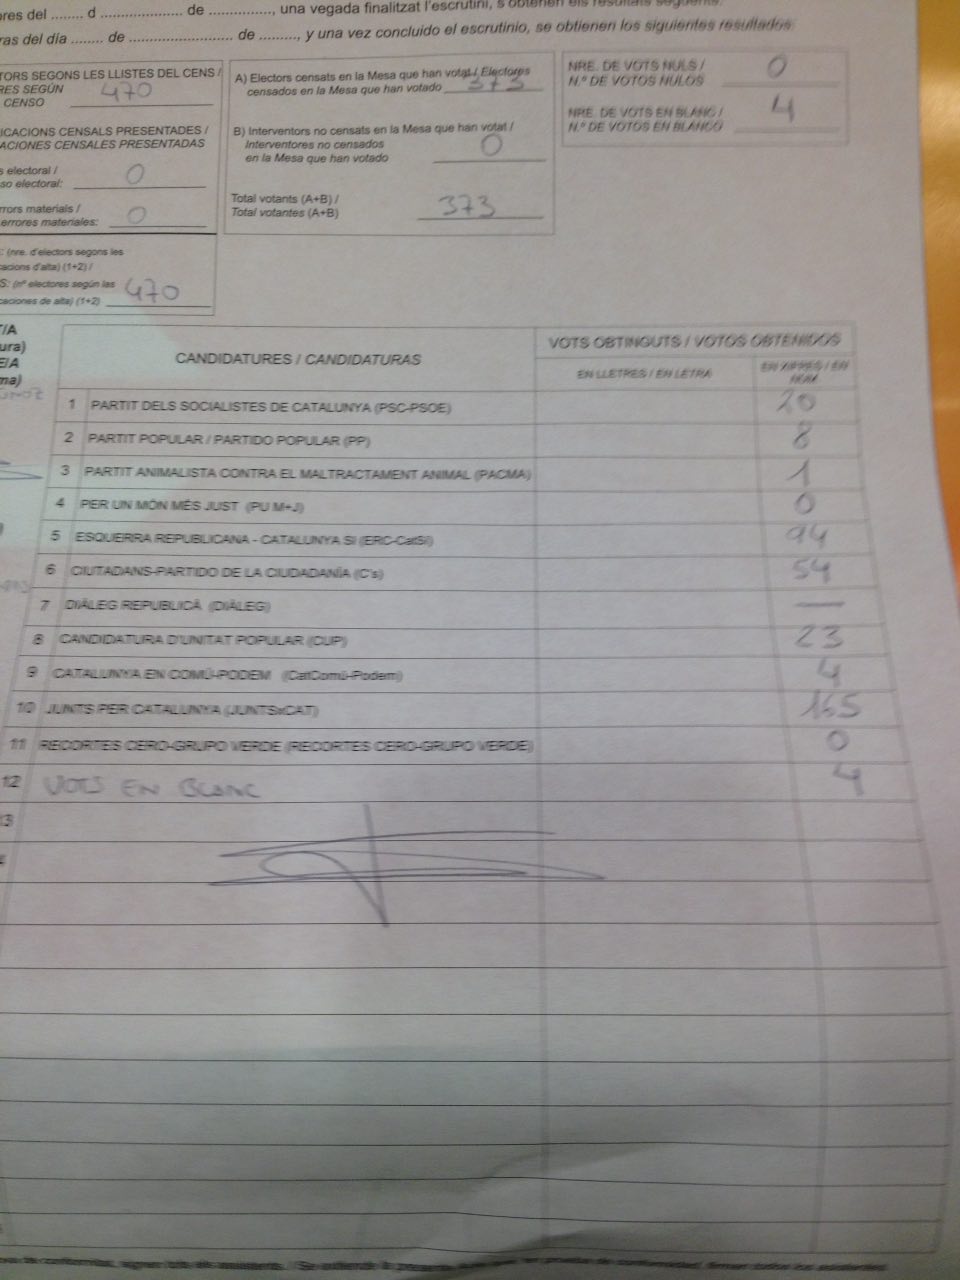 ores del ........ d ...................... de ................, una vegada finalitzat l'escrutini, s'obtenen els resultats següents:
ras del día ........ de ......................... de .........., y una vez concluido el escrutinio, se obtienen los siguientes resultados:
TORS SEGONS LES LLISTES DEL CENS /
RES SEGÚN
CENSO 470
ICACIONS CENSALS PRESENTADES /
ACIONES CENSALES PRESENTADAS
s electoral /
so electoral: 0
rrors materials /
errores materiales: 0
: (nre. d'electors segons les
cacions d'alta) (1+2) /
S: (nº electores según las
caciones de alta) (1+2) 470
A) Electors censats en la Mesa que han votat / Electores
censados en la Mesa que han votado 373
B) Interventors no censats en la Mesa que han votat /
Interventores no censados
en la Mesa que han votado 0
Total votants (A+B) /
Total votantes (A+B) 373
NRE. DE VOTS NULS /
N.º DE VOTOS NULOS 0
NRE. DE VOTS EN BLANC /
N.º DE VOTOS EN BLANCO 4
T/A
ura)
E/A
ma)
CANDIDATURES / CANDIDATURAS
VOTS OBTINGUTS / VOTOS OBTENIDOS
EN LLETRES / EN LETRA
EN XIFRES / EN
NÚM.
1 PARTIT DELS SOCIALISTES DE CATALUNYA (PSC-PSOE) 20
2 PARTIT POPULAR / PARTIDO POPULAR (PP) 8
3 PARTIT ANIMALISTA CONTRA EL MALTRACTAMENT ANIMAL (PACMA) 1
4 PER UN MÓN MÉS JUST (PU M+J) 0
5 ESQUERRA REPUBLICANA - CATALUNYA SÍ (ERC-CatSí) 94
6 CIUTADANS-PARTIDO DE LA CIUDADANÍA (C's) 54
7 DIÀLEG REPUBLICÀ (DIÀLEG) —
8 CANDIDATURA D'UNITAT POPULAR (CUP) 23
9 CATALUNYA EN COMÚ-PODEM (CatComú-Podem) 4
10 JUNTS PER CATALUNYA (JUNTSxCAT) 165
11 RECORTES CERO-GRUPO VERDE (RECORTES CERO-GRUPO VERDE) 0
12 VOTS EN BLANC 4
3